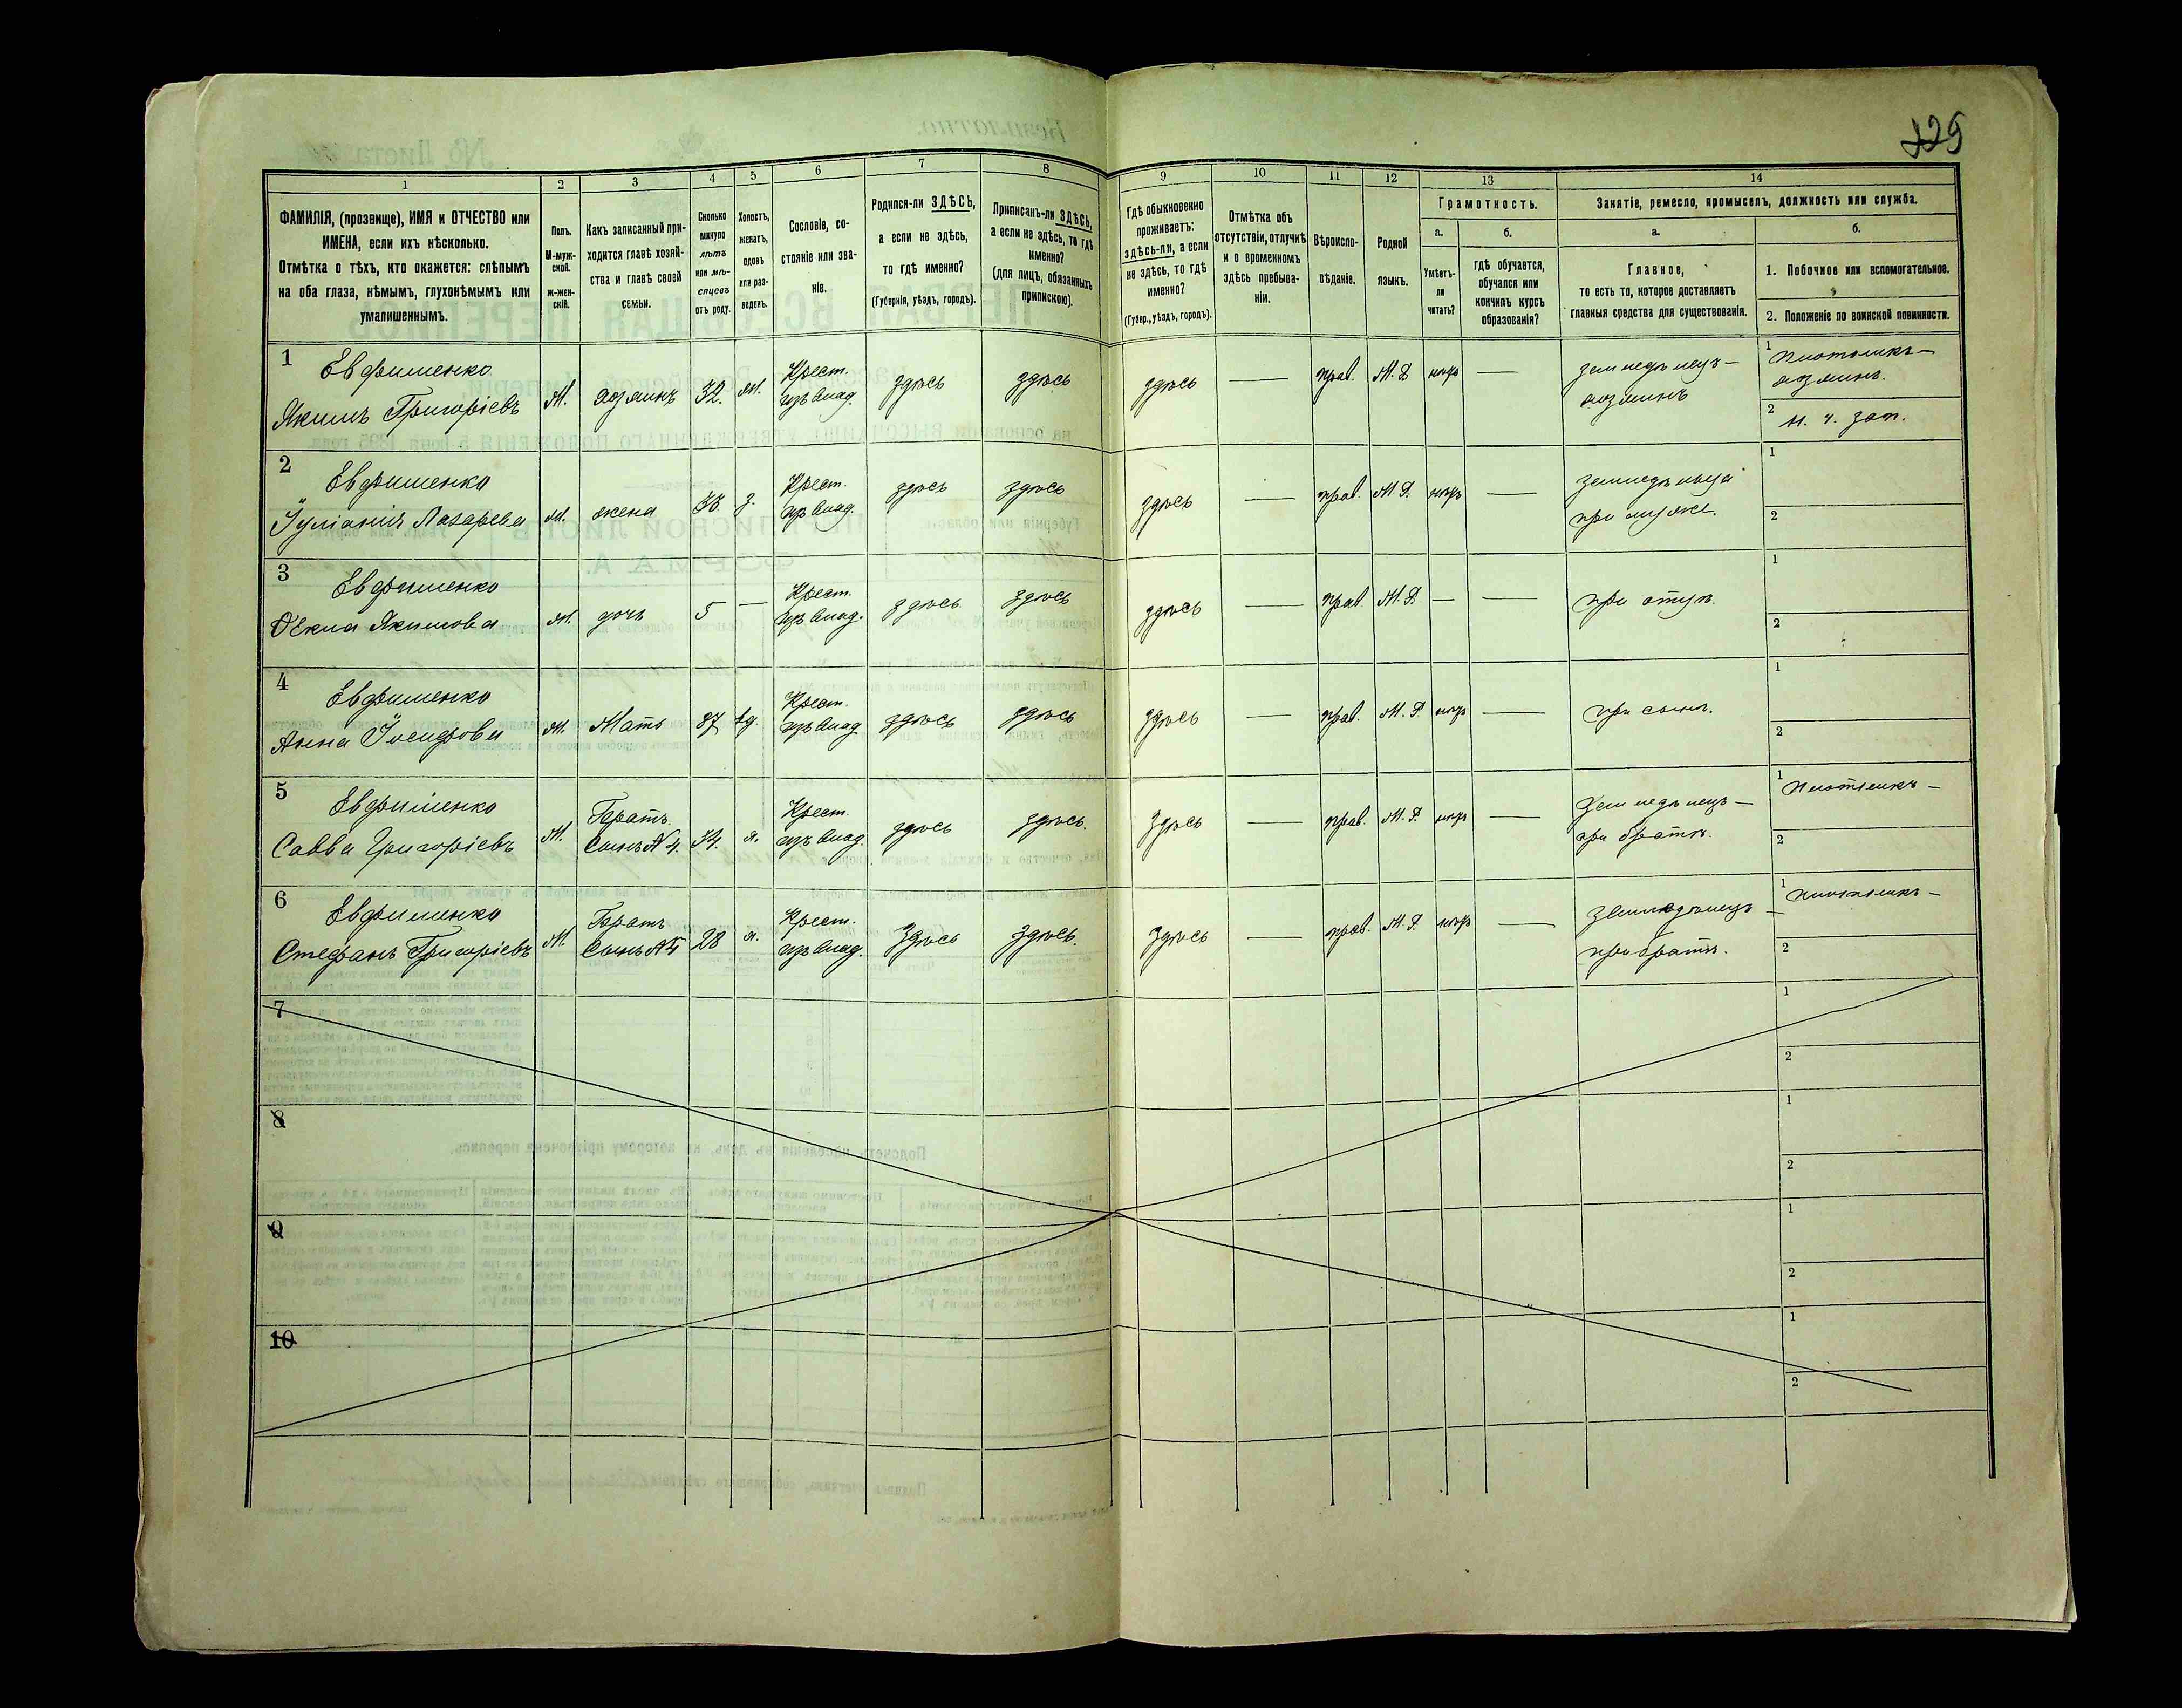 229
1 2 3 4 5 6 7 8 9 10 11 12 13 14
ФАМИЛІЯ, (прозвище), ИМЯ и ОТЧЕСТВО или
ИМЕНА, если ихъ нѣсколько.
Отмѣтка о тѣхъ, кто окажется: слѣпымъ
на оба глаза, нѣмымъ, глухонѣмымъ или
умалишеннымъ.
Полъ.
М-муж-
ской.
Ж-жен-
скій.
Какъ записанный при-
ходится главѣ хозяй-
ства и главѣ своей
семьи.
Сколько
минуло
лѣтъ
или мѣ-
сяцевъ
отъ роду.
Холостъ,
женатъ,
вдовъ
или раз-
веденъ.
Сословіе, со-
стояніе или зва-
ніе.
Родился-ли ЗДѢСЬ,
а если не здѣсь,
то гдѣ именно?
(Губернія, уѣздъ, городъ).
Приписанъ-ли ЗДѢСЬ,
а если не здѣсь, то гдѣ
именно?
(для лицъ, обязанныхъ
припискою).
Гдѣ обыкновенно
проживаетъ:
здѣсь-ли, а если
не здѣсь, то гдѣ
именно?
(Губер., уѣздъ, городъ).
Отмѣтка объ
отсутствіи, отлучкѣ
и о временномъ
здѣсь пребыва-
ніи.
Вѣроиспо-
вѣданіе.
Родной
языкъ.
Грамотность.
а.
Умѣетъ-
ли
читать?
б.
гдѣ обучается,
обучался или
кончилъ курсъ
образованія?
Занятіе, ремесло, промыселъ, должность или служба.
а.
Главное,
то есть то, которое доставляетъ
главныя средства для существованія.
б.
1. Побочное или вспомогательное.
2. Положеніе по воинской повинности.
1 Евфименко
Якимъ Григоріевъ М. хозяинъ 32. ж. Крест. изъ влад. здѣсь здѣсь здѣсь — прав. М. Р. нѣтъ — земледѣлецъ — хозяинъ
1 плотникъ — хозяинъ.
2 н. ч. зап.
2 Евфименко
Іуліанія Лазарева ж. жена з. Крест. изъ влад. здѣсь здѣсь здѣсь — прав. М. Р. нѣтъ — при мужѣ.
1
2
3 Евфименко
Ѳекла Якимова ж. дочь 5 — Крест. изъ влад. здѣсь здѣсь здѣсь — прав. М. Р. — — при отцѣ.
1
2
4 Евфименко
Анна Іосифова ж. Мать вд. Крест. изъ влад. здѣсь здѣсь здѣсь — прав. М. Р. нѣтъ — при сынѣ.
1
2
5 Евфименко
Савва Григоріевъ М. Братъ. Сынъ № 4. х. Крест. изъ влад. здѣсь здѣсь. здѣсь — прав. М. Р. нѣтъ — земледѣлецъ — при братѣ.
1 плотникъ —
2
6 Евфименко
Стефанъ Григоріевъ М. Братъ Сынъ № 4 28 х. Крест. изъ влад. здѣсь здѣсь. здѣсь — прав. М. Р. нѣтъ — земледѣлецъ — при братѣ.
1 плотникъ —
2
7
1
2
8
1
2
9
1
2
10
1
2